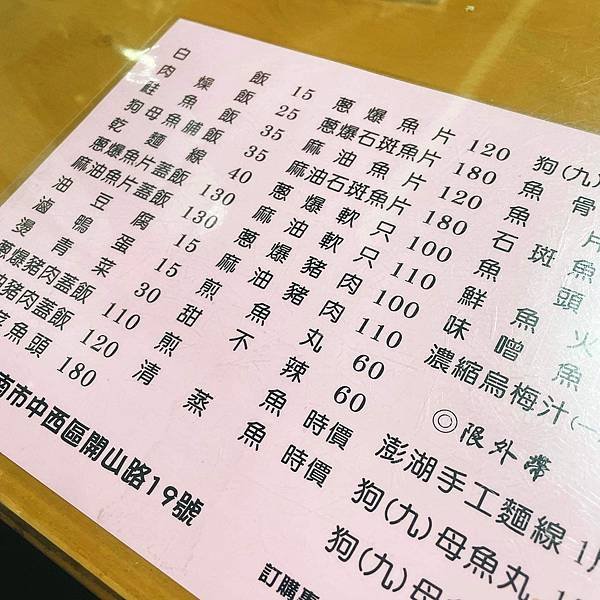 白飯 15
肉燥飯 25
鮭魚飯 35
狗母魚脯飯 35
乾麵線 40
蔥爆魚片蓋飯 130
麻油魚片蓋飯 130
油豆腐 15
滷鴨蛋 15
燙青菜 30
蔥爆豬肉蓋飯 110
油豬肉蓋飯 120
魚頭 180
蔥爆魚片 120
蔥爆石斑魚片 180
麻油魚片 120
麻油石斑魚片 180
蔥爆軟只 100
麻油軟只 110
蔥爆豬肉 100
麻油豬肉 110
煎魚丸 60
甜不辣 60
煎魚 時價
清蒸魚 時價
狗(九)
魚骨
魚片
石斑魚
魚頭
鮮魚火
味噌魚
濃縮烏梅汁(一
◎限外帶
澎湖手工麵線1
狗(九)母魚丸
狗(九)母
訂購
南市中西區開山路19號